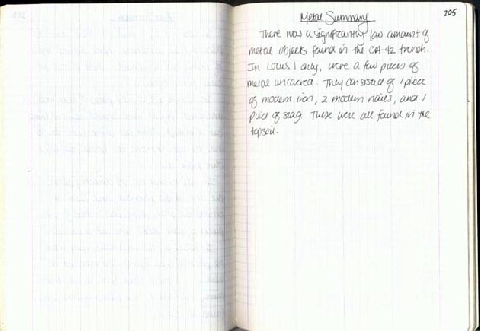 Metal Summary
205
There was a significantly low amount of
metal objects found in the CA-42 trench.
In Locus 1 only, were a few pieces of
metal uncovered. They consisted of 1 piece
of modern iron, 2 modern nails, and 1
piece of slag. These were all found in the
topsoil.